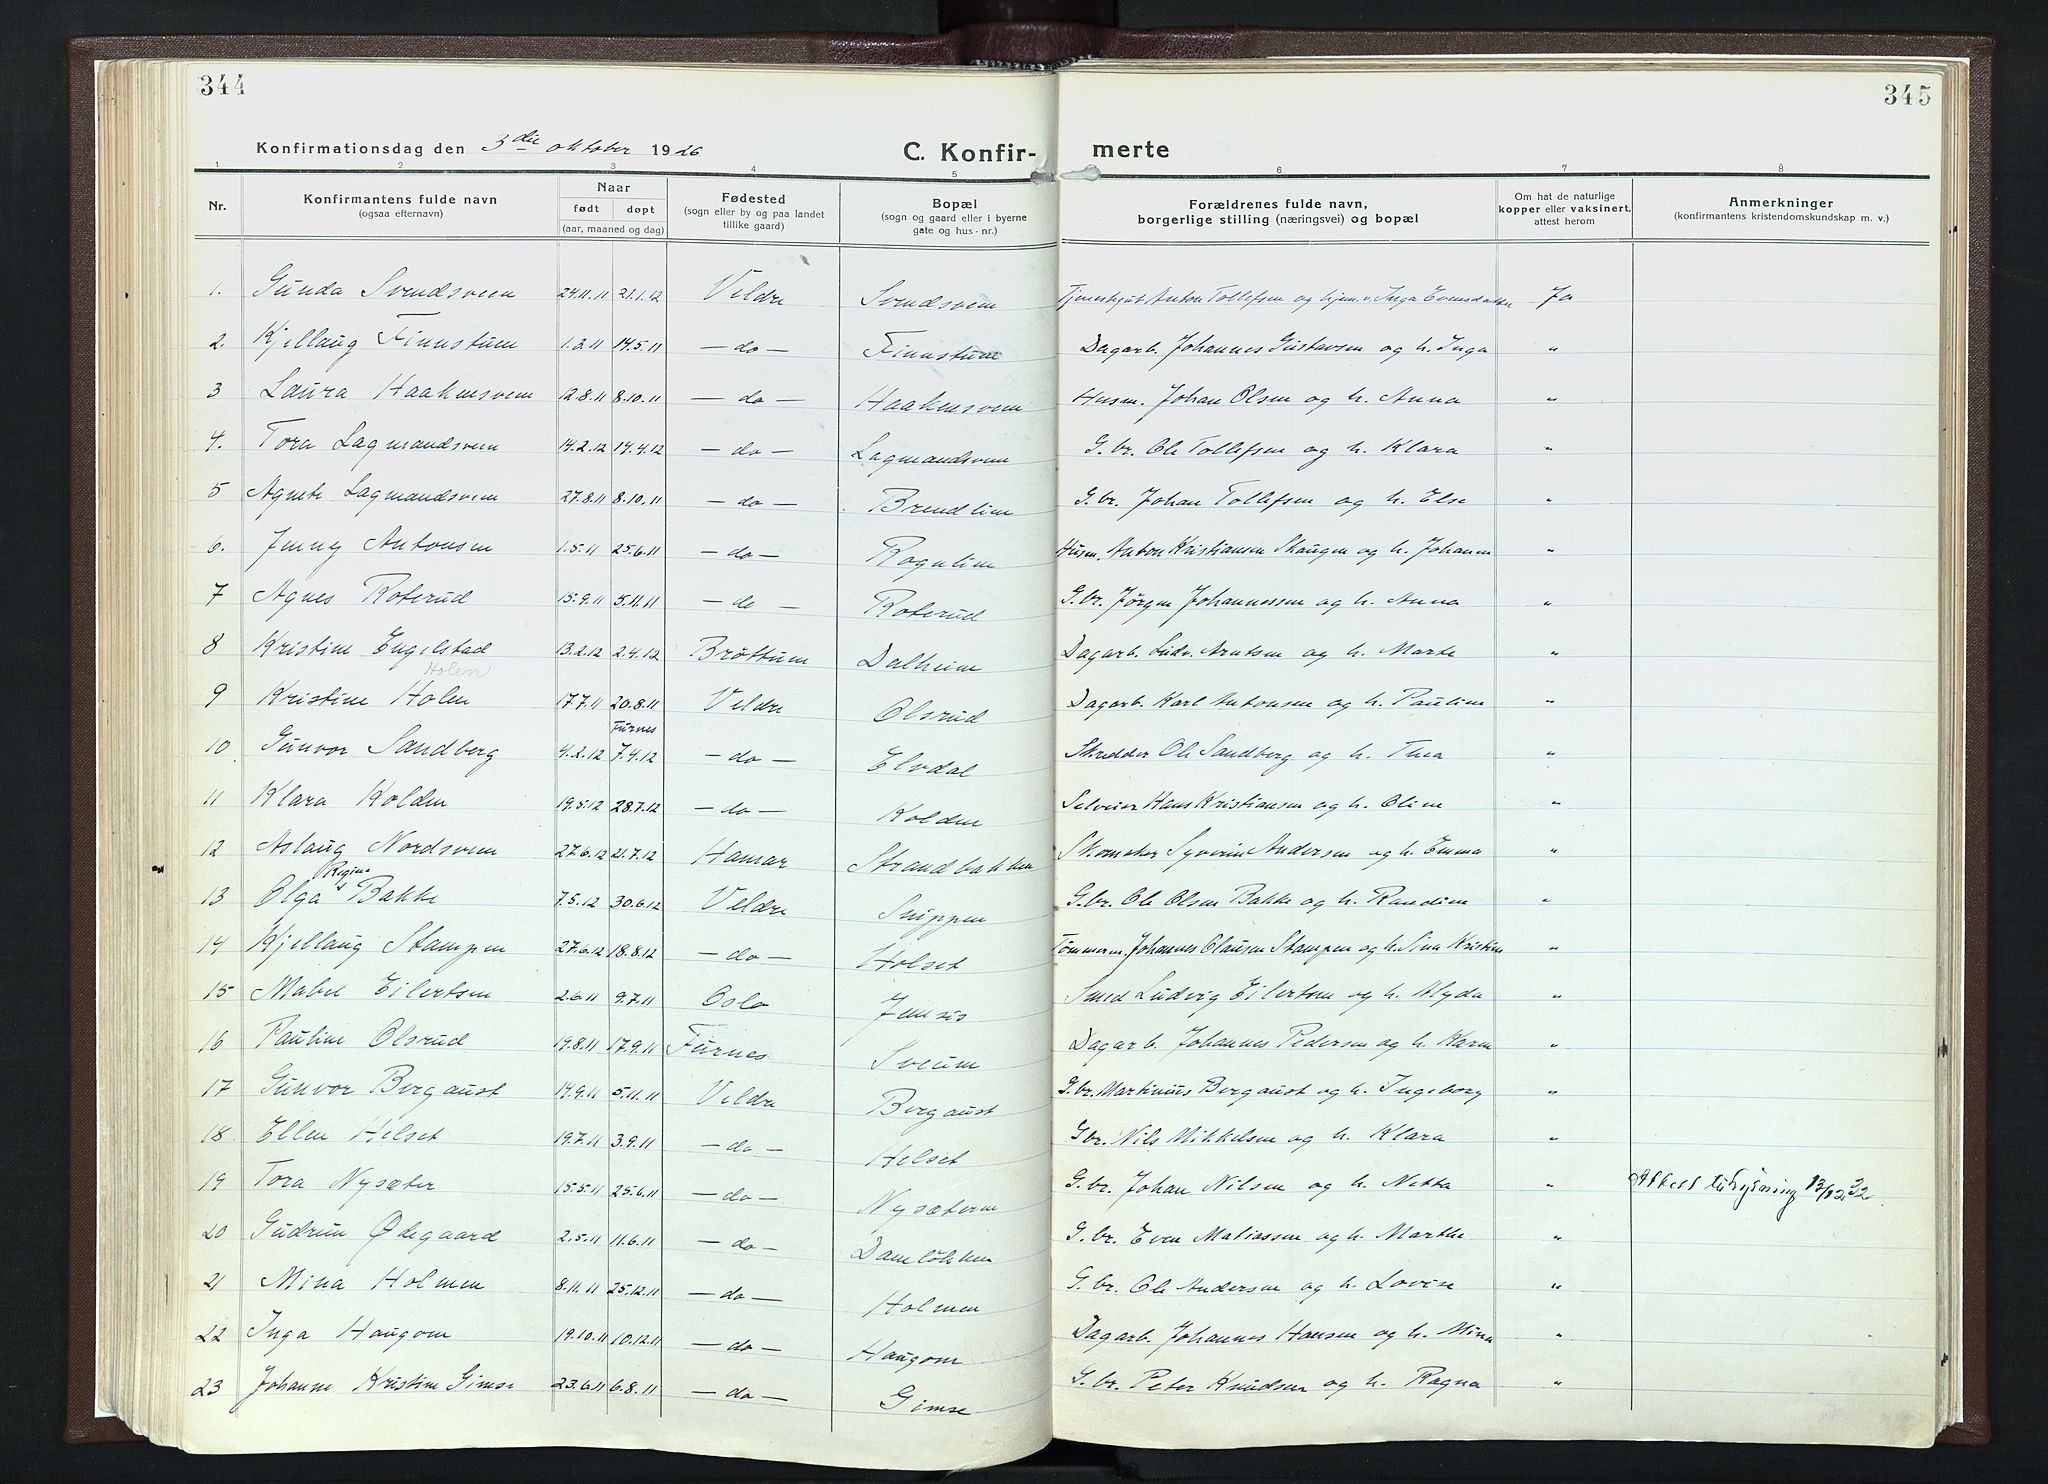 344
345
Konfirmationsdag den 3die oktober 1926
C. Konfir- merte
1 2 3 4 5 6 7 8
Nr.
Konfirmantens fulde navn
(ogsaa efternavn)
Naar
født døpt
(aar, maaned og dag)
Fødested
(sogn eller by og paa landet
tillike gaard)
Bopæl
(sogn og gaard eller i byerne
gate og hus-nr.)
Forældrenes fulde navn,
borgerlige stilling (næringsvei) og bopæl
Om hat de naturlige
kopper eller vaksinert,
attest herom
Anmerkninger
(konfirmantens kristendomskundskap m. v.)
1. Gunda Svendsveen 24.11.11 21.1.12 Veldre Svendsveen Tjenestegut Anton Tollefsen og hjem.v. Inga Evensdatter Ja
2. Kjellaug Finnstuen 1.2.11 14.5.11 — do — Finnstuen Dagarb. Johannes Gustavsen og h. Inga "
3 Laura Haakensveen 12.8.11 8.10.11 — do — Haakensveen Husm. Johan Olsen og h. Anna "
4. Tora Lagmandsveen 14.2.12 14.4.12 — do — Lagmandsveen G.br. Ole Tollefsen og h. Klara "
5 Agnete Lagmandsveen 27.8.11 8.10.11 — do — Brendlien G.br. Johan Tollefsen og h. Else "
6. Jenny Antonsen 1.5.11 25.6.11 — do — Rognlien Husm. Anton Kristiansen Skaugen og h. Johanne "
7 Agnes Roterud 15.9.11 5.11.11 — do — Roterud G.br. Jørgen Johannessen og h. Anna "
8 Kristine Engelstad 13.2.12 2.4.12 Brøttum Dalheim Dagarb. Ludv. Arntsen og h. Marte "
Holen
9 Kristine Holen 17.7.11 20.8.11 Veldre Olsrud Dagarb. Karl Antonsen og h. Pauline "
Furnes
10 Gunvor Sandberg 4.2.12 7.4.12 — do — Elvdal Skredder Ole Sandberg og h. Thea "
11 Klara Kolden 19.5.12 28.7.12 — do — Kolden Selveier Hans Kristiansen og h. Oline "
12 Aslaug Nordsveen 27.6.12 21.7.12 Hamar Strandbakken Skomaker Syverin Andersen og h. Emma "
Regine
13 Olga Bakke 7.5.12 30.6.12 Veldre Snippen G.br. Ole Olsen Bakke og h. Randine "
14 Kjellaug Stampen 27.6.12 18.8.12 — do — Holset Tømmerm. Johannes Olausen Stampen og h. Sina Kristine "
15 Mabel Eilertsen 2.6.11 9.7.11 Oslo Jensis Smed Ludvig Eilertsen og h. Alyda "
16 Pauline Olsrud 19.8.11 17.9.11 Furnes Sveum Dagarb. Johannes Pedersen og h. Karen "
17 Gunvor Bergaust 14.9.11 5.11.11 Veldre Bergaust G.br. Martinius Bergaust og h. Ingeborg "
18. Ellen Helset 19.7.11 3.9.11 — do — Helset G.br. Nils Mikkelsen og h. Klara "
19 Tora Nysæter 15.5.11 25.6.11 — do — Nysæteren G.br. Johan Nilsen og h. Netta " Attest til lysning 13/12 32.
20 Gudrun Ødegaard 2.5.11 11.6.11 — do — Damløkken G.br. Even Matiassen og h. Marthe "
21 Mina Holmen 8.11.11 25.12.11 — do — Holmen G.br. Ole Andersen og h. Lovise "
22 Inga Haugom 19.10.11 10.12.11 — do — Haugom Dagarb. Johannes Hansen og h. Mina "
23 Johanne Kristine Gimse 23.6.11 6.8.11 — do — Gimse G.br. Peter Knudsen og h. Ragna "